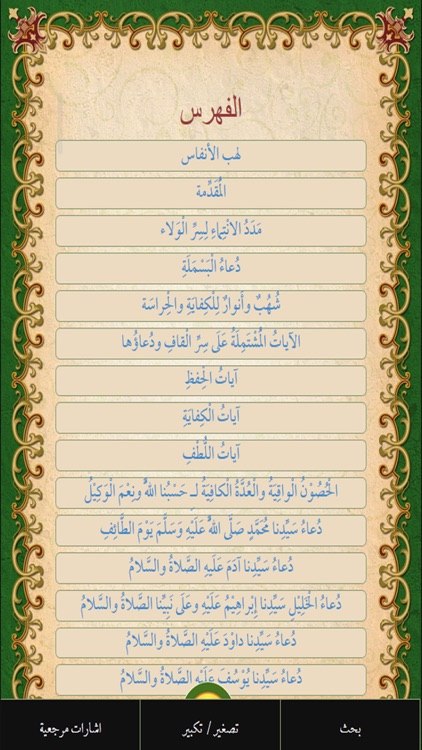 الفهرس
لهب الأنفاس
الْمُقَدِّمة
مَدَدُ الانْتِماءِ لِسِرِّ الْوَلاء
دُعاءُ الْبَسْمَلَةِ
شُهُبٌ وأَنوارٌ لِلْكِفايَةِ والْحِراسَة
الآياتُ الْمُشْتمِلَةُ عَلَى سِرِّ الْقافِ ودُعاؤُها
آياتُ الْحِفظِ
آياتُ الْكِفايَةِ
آياتُ اللُّطْفِ
الْحُصُوْنُ الْواقِيَةُ والْعُدَّةُ الْكافِيَةُ لـِ حَسْبُنا اللهُ ونِعْمَ الْوَكِيْلُ
دُعاءُ سَيِّدِنا مُحَمَّدٍ صَلَّى اللهُ عَلَيْهِ وَسَلَّمَ يَوْمَ الطَّائِفِ
دُعاءُ سَيِّدِنا آدَمَ عَلَيهِ الصَّلاةُ والسَّلامُ
دُعاءُ الْخَلِيْلِ سَيِّدِنا إِبْراهِيْمُ عَلَيْهِ وعَلَى نَبِيِّنا الصَّلاةُ والسَّلامُ
دُعاءُ سَيِّدِنا داوُدَ عَلَيْهِ الصَّلاةُ والسَّلامُ
دُعاءُ سَيِّدِنا يُوْسُفَ عَلَيْهِ الصَّلاةُ والسَّلامُ
بحث
تصغير / تكبير
اشارات مرجعية